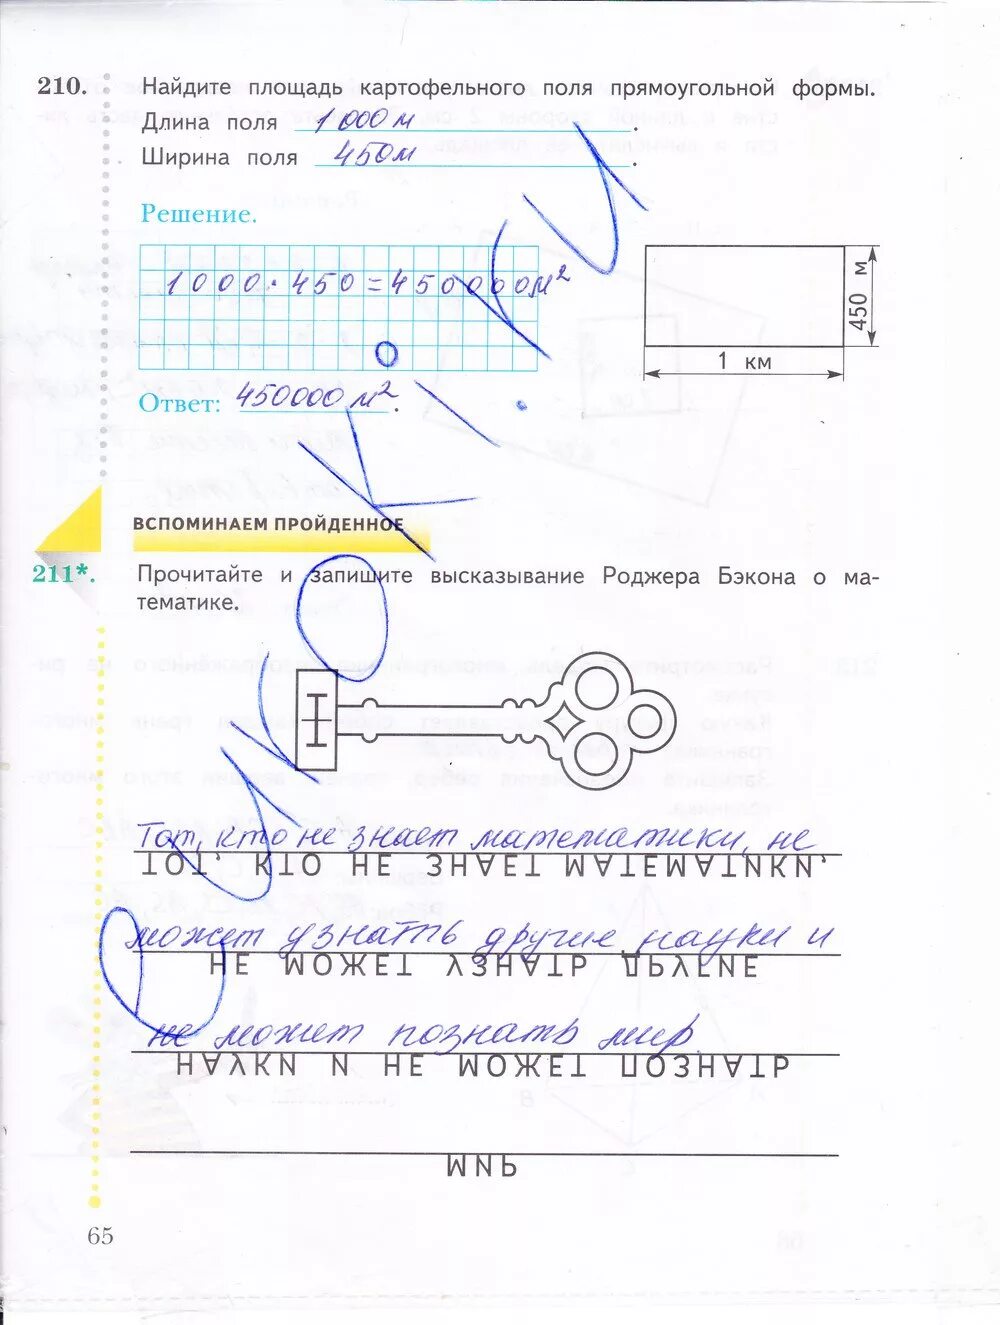 210. Найдите площадь картофельного поля прямоугольной формы.
Длина поля 1000м.
Ширина поля 450м.
Решение.
1000·450=450000м²
Ответ: 450000м².
450 м
1 км
ВСПОМИНАЕМ ПРОЙДЕННОЕ
211*. Прочитайте и запишите высказывание Роджера Бэкона о ма-
тематике.
Тот, кто не знает математики, не
ТОТ, КТО НЕ ЗНАЕТ МАТЕМАТИКИ,
может узнать другие науки и
НЕ МОЖЕТ УЗНАТЬ ДРУГИЕ
не может познать мир
НАУКИ И НЕ МОЖЕТ ПОЗНАТЬ
МИР
65